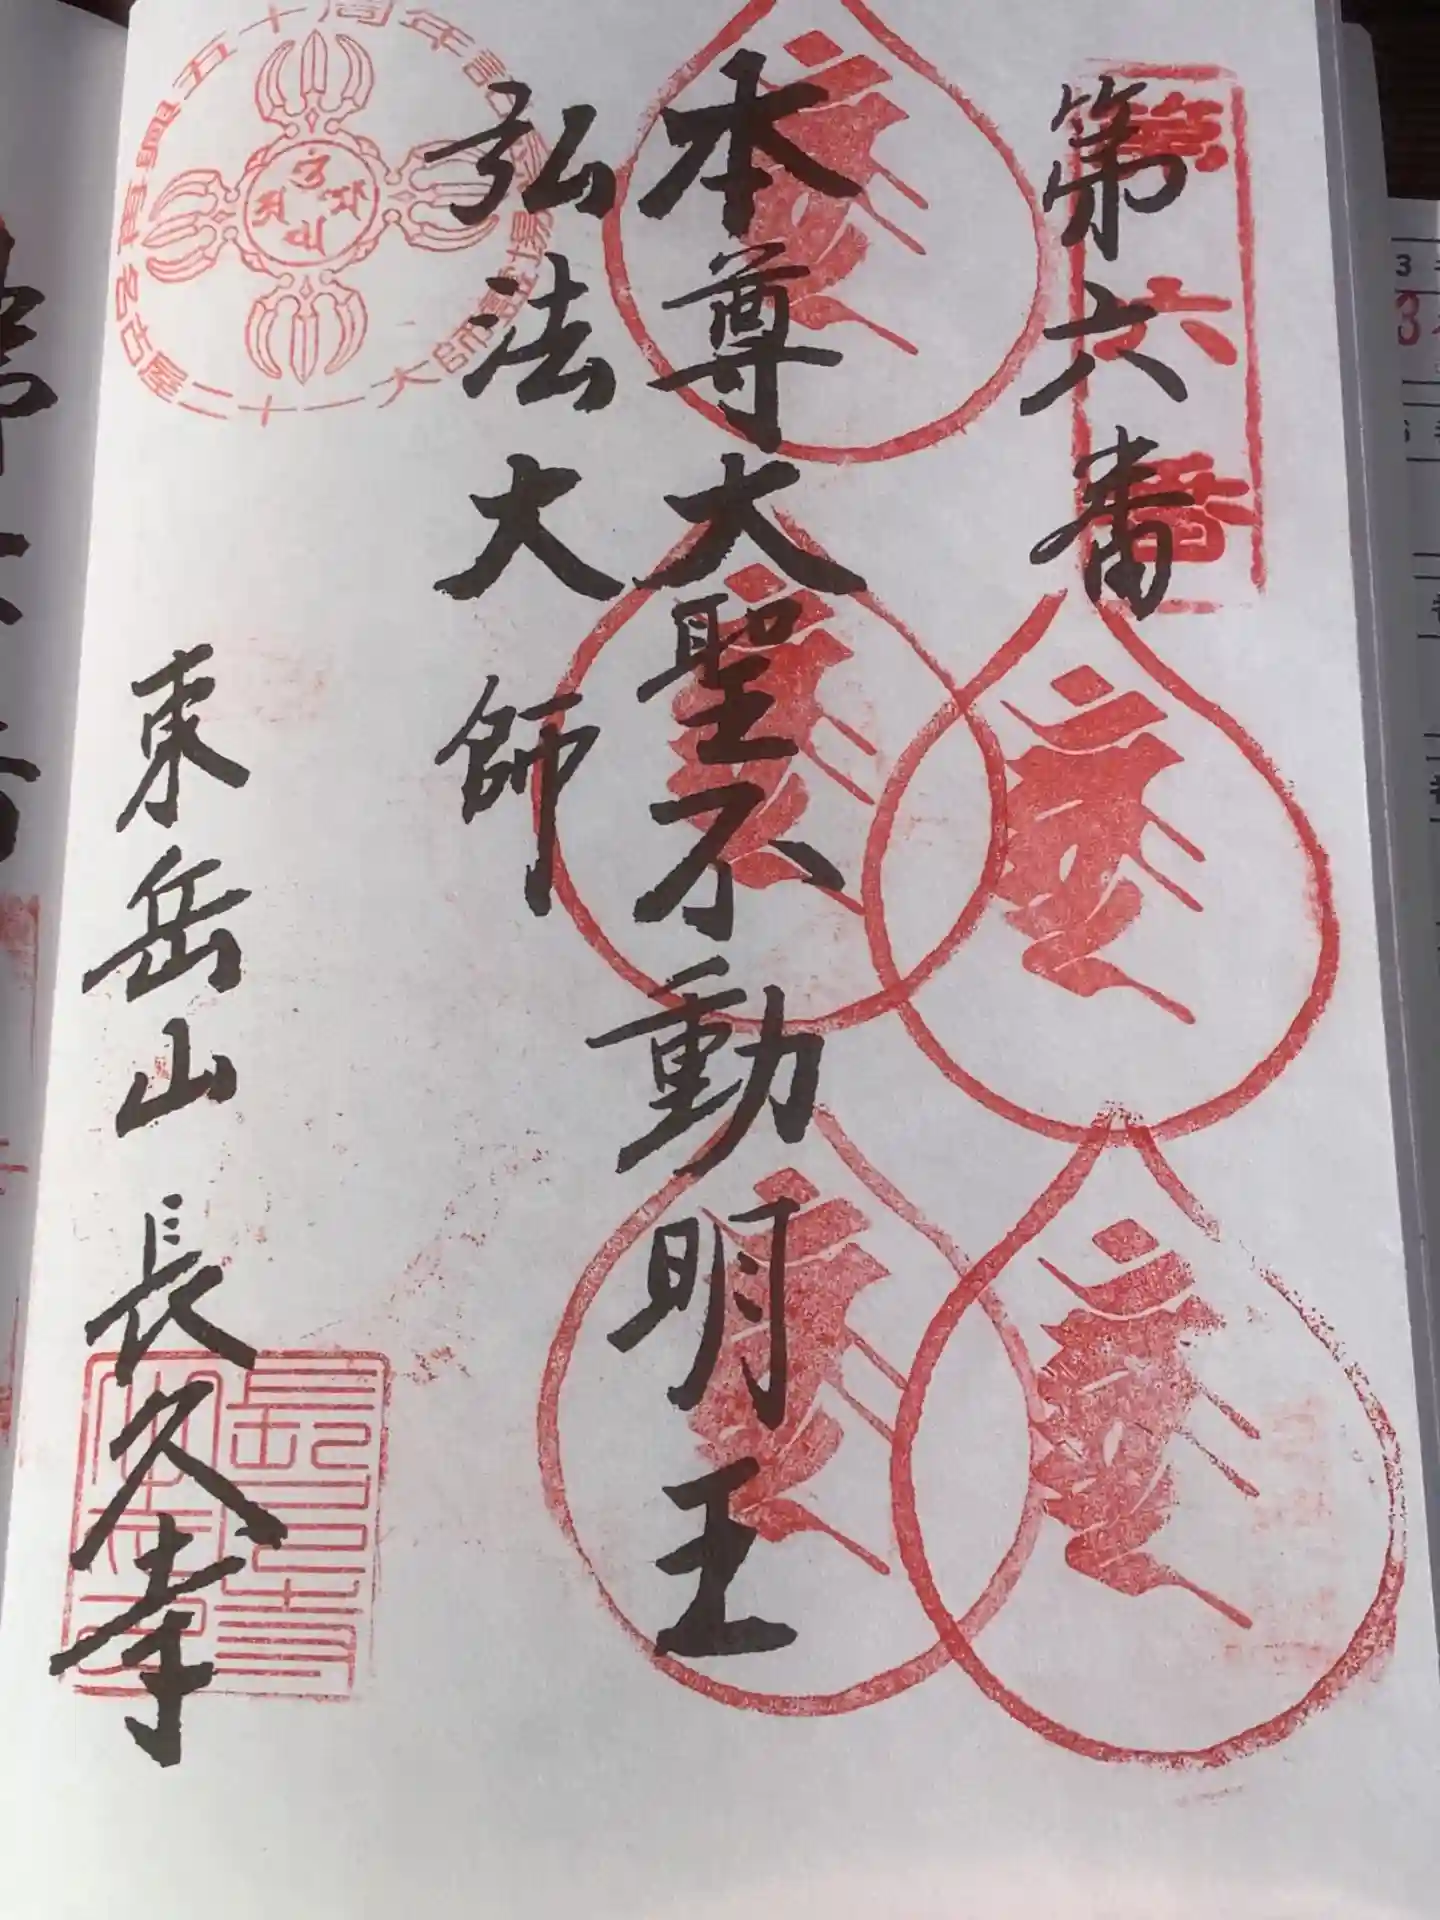 第六番
第六番
本尊大聖不動明王
弘法大師
東岳山 長久寺
五十周年記
名古屋二十一大師霊場
長久寺